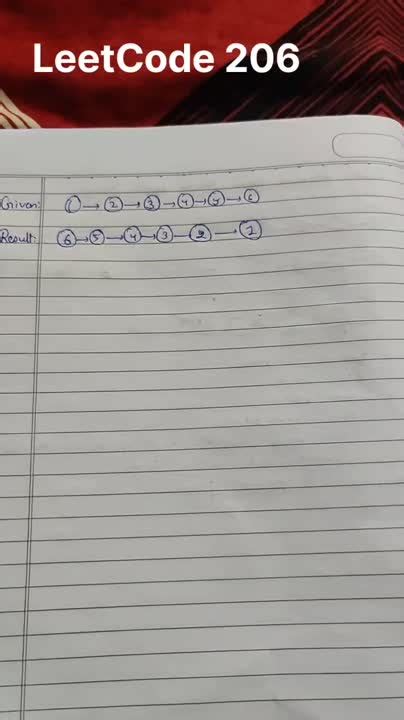 LeetCode 206
Given: 1 → 2 → 3 → 4 → 4 → 6
Result: 6 → 5 → 4 → 3 → 2 → 1